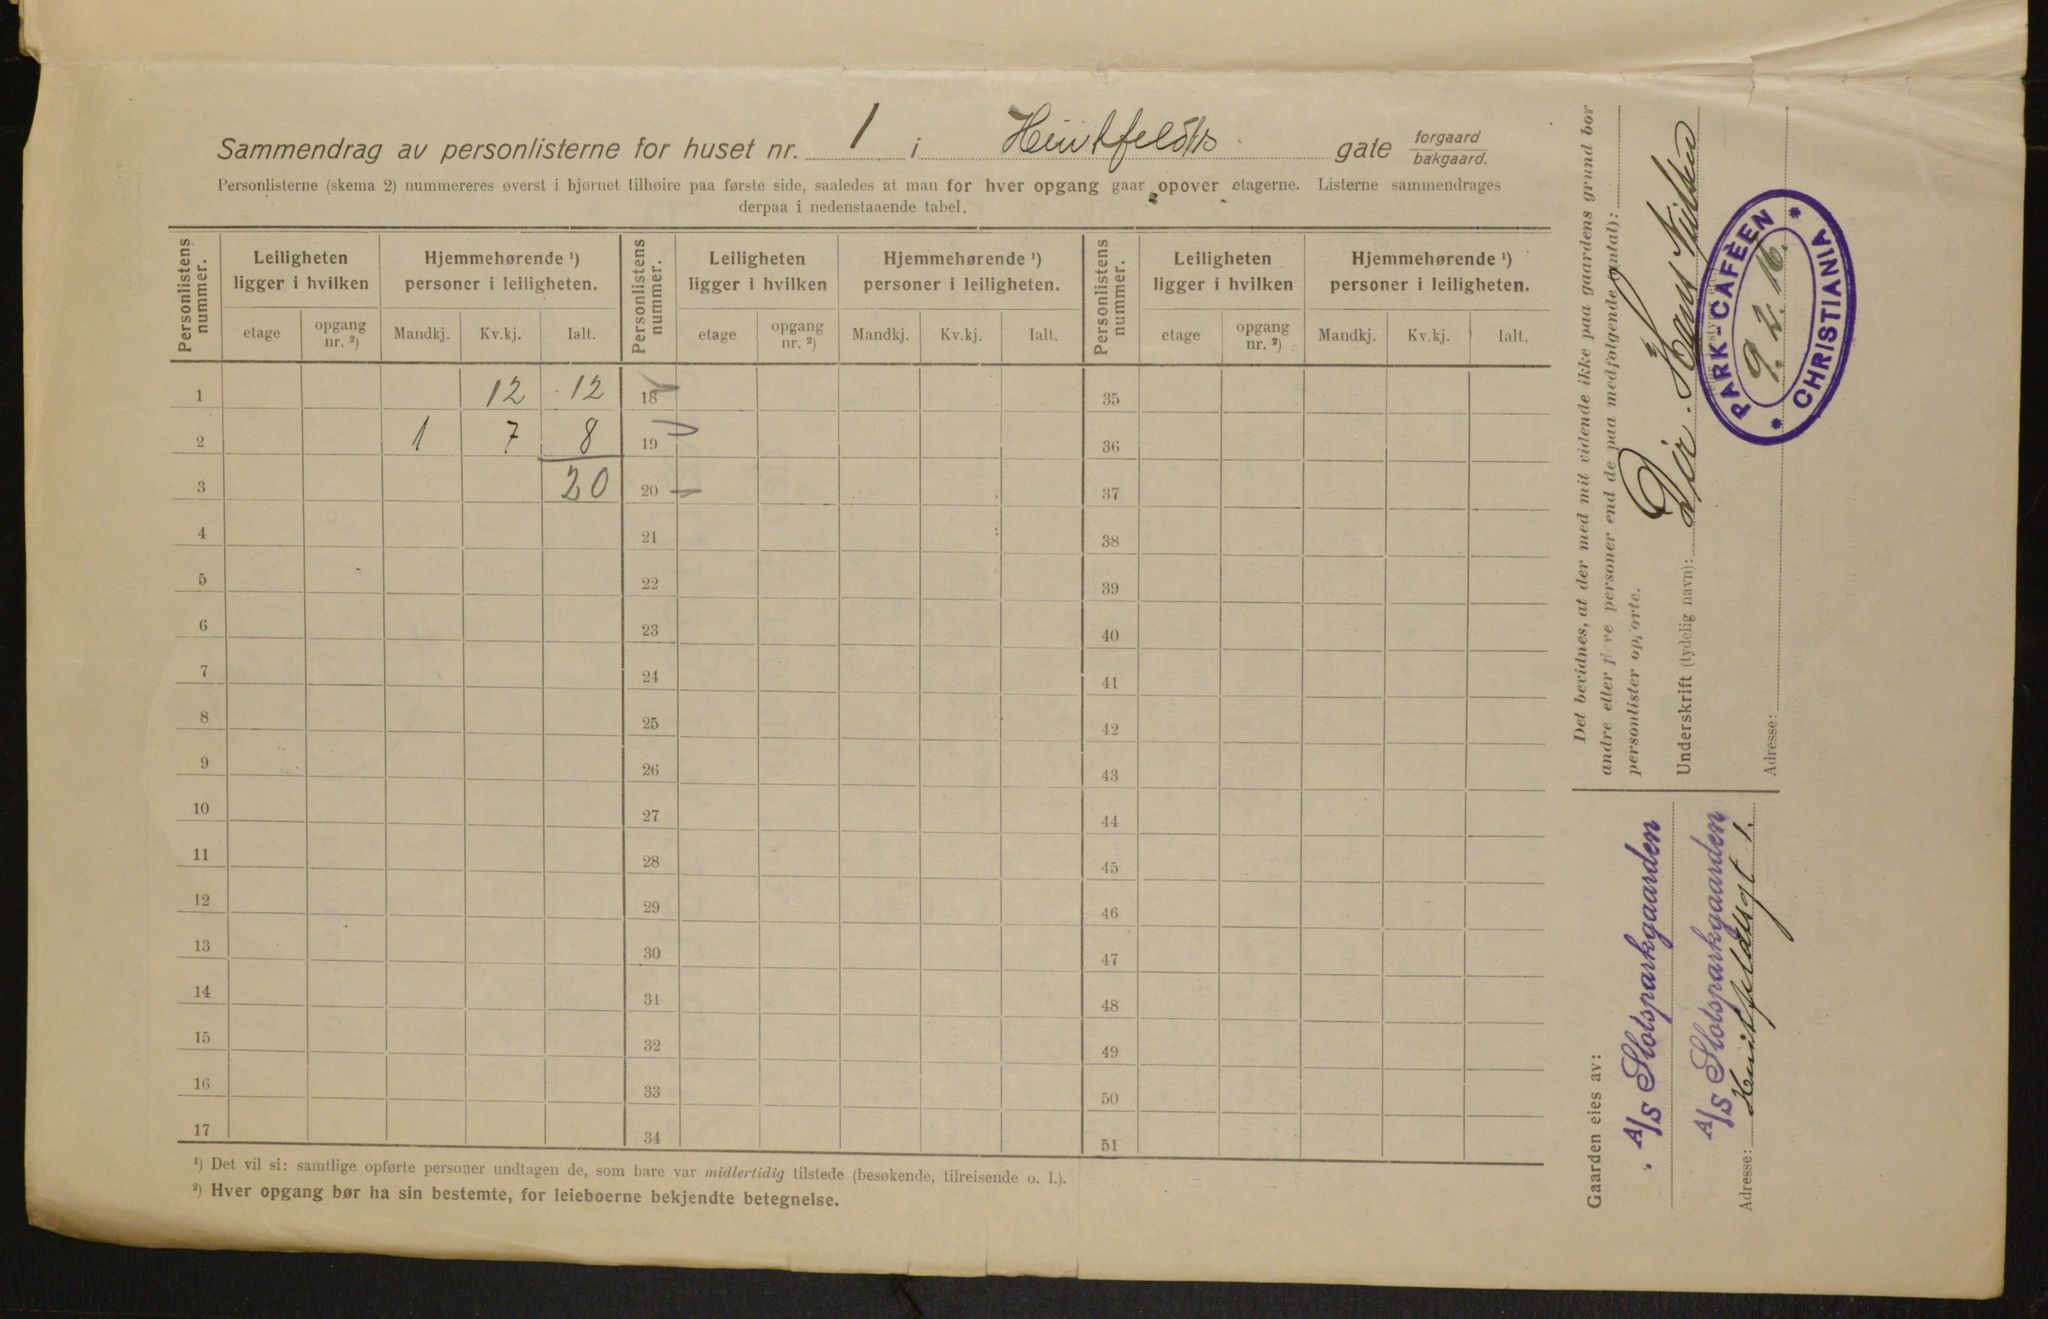 Sammendrag av personlisterne for huset nr. 1 i Huitfeldts gate forgaard bakgaard.
Personlisterne (skema 2) nummereres øverst i hjørnet tilhøire paa første side, saaledes at man for hver opgang gaar opover etagerne. Listerne sammendrages
derpaa i nedenstaaende tabel.
Personlistens nummer. Leiligheten ligger i hvilken Hjemmehørende ¹) personer i leiligheten. Personlistens nummer. Leiligheten ligger i hvilken Hjemmehørende ¹) personer i leiligheten. Personlistens nummer. Leiligheten ligger i hvilken Hjemmehørende ¹) personer i leiligheten.
etage opgang nr. ²) Mandkj. Kv.kj. Ialt. etage opgang nr. ²) Mandkj. Kv.kj. Ialt. etage opgang nr. ²) Mandkj. Kv.kj. Ialt.
1 12 12 18 35
2 1 7 8 19 36
3 20 20 37
4 21 38
5 22 39
6 23 40
7 24 41
8 25 42
9 26 43
10 27 44
11 28 45
12 29 46
13 30 47
14 31 48
15 32 49
16 33 50
17 34 51
¹) Det vil si: samtlige opførte personer undtagen de, som bare var midlertidig tilstede (besøkende, tilreisende o. l.).
²) Hver opgang bør ha sin bestemte, for leieboerne bekjendte betegnelse.
Det bevidnes, at der med mit vidende ikke paa gaardens grund bor
andre eller flere personer end de paa medfølgende (antal):
personlister opførte.
Underskrift (tydelig navn): Dir. Hans Nielsen
Adresse:
PARK-CAFÈEN
9.2.16.
CHRISTIANIA
Gaarden eies av:
A/S Slotsparkgaarden
A/S Slotsparkgaarden
Adresse: Huitfeldtsgt 1.